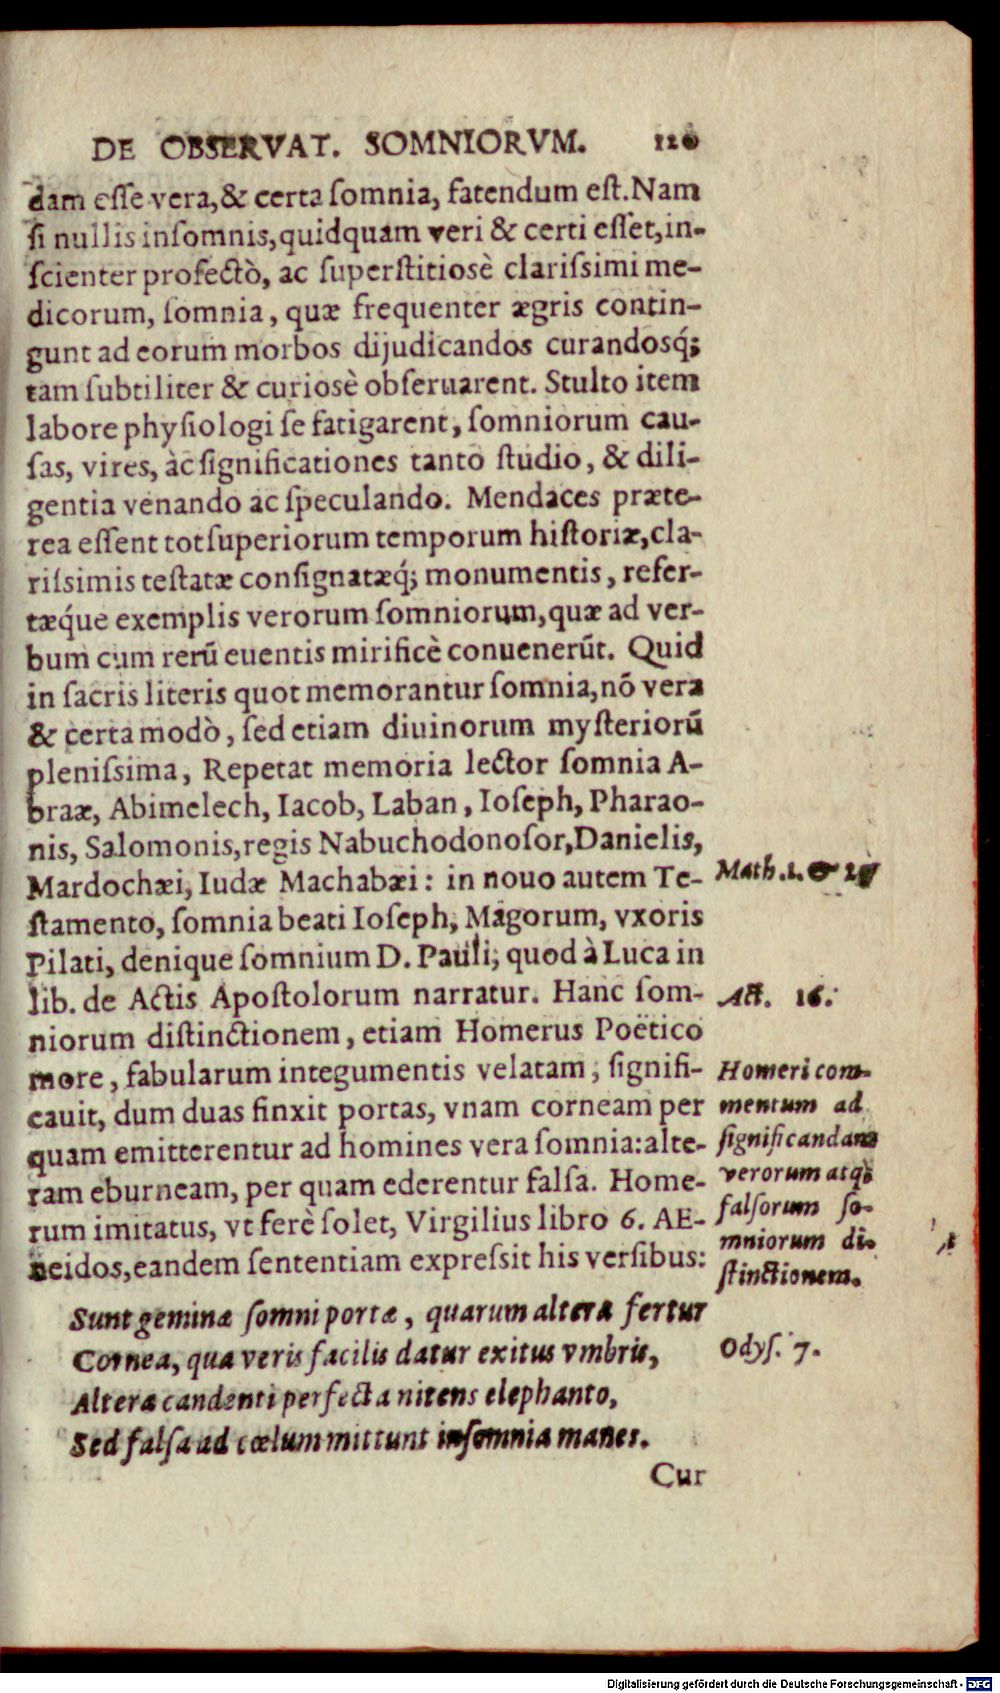 DE OBSERVAT. SOMNIORVM. 120
dam eſſe vera, & certa ſomnia, fatendum eſt. Nam
ſi nullis inſomnis, quidquam veri & certi eſſet, in-
ſcienter profectò, ac ſuperſtitiosè clariſsimi me-
dicorum, ſomnia, quæ frequenter ægris contin-
gunt ad eorum morbos dijudicandos curandosq́;
tam ſubtiliter & curiosè obſeruarent. Stulto item
labore phyſiologi ſe fatigarent, ſomniorum cau-
ſas, vires, àc ſignificationes tanto ſtudio, & dili-
gentia venando ac ſpeculando. Mendaces præte-
rea eſſent tot ſuperiorum temporum hiſtoriæ, cla-
riſsimis teſtatæ conſignatæq́; monumentis, refer-
tæq́ue exemplis verorum ſomniorum, quæ ad ver-
bum cum rerū euentis mirificè conuenerūt. Quid
in ſacris literis quot memorantur ſomnia, nō vera
& certa modò, ſed etiam diuinorum myſteriorū
pleniſsima, Repetat memoria lector ſomnia A-
braæ, Abimelech, Iacob, Laban, Ioſeph, Pharao-
nis, Salomonis, regis Nabuchodonoſor, Danielis,
Mardochæi, Iudæ Machabæi: in nouo autem Te-
ſtamento, ſomnia beati Ioſeph, Magorum, vxoris
Pilati, denique ſomnium D. Pauli; quod à Luca in
lib. de Actis Apoſtolorum narratur. Hanc ſom-
niorum diſtinctionem, etiam Homerus Poëtico
more, fabularum integumentis velatam, ſignifi-
cauit, dum duas finxit portas, vnam corneam per
quam emitterentur ad homines vera ſomnia: alte-
ram eburneam, per quam ederentur falſa. Home-
rum imitatus, vt ferè ſolet, Virgilius libro 6. AE-
neidos, eandem ſententiam expreſsit his verſibus:
Sunt geminæ ſomni portæ, quarum altera fertur
Cornea, qua veris facilis datur exitus vmbris,
Altera candenti perfecta nitens elephanto,
Sed falſa ad cœlum mittunt inſomnia manes.
Cur
Math. 1. &
Act. 16.
Homeri com-
mentum ad
ſignificandam
verorum atq;
falſorum ſo-
mniorum di-
ſtinctionem.
Odyſ. 7.
Digitalisierung gefördert durch die Deutsche Forschungsgemeinschaft - DFG